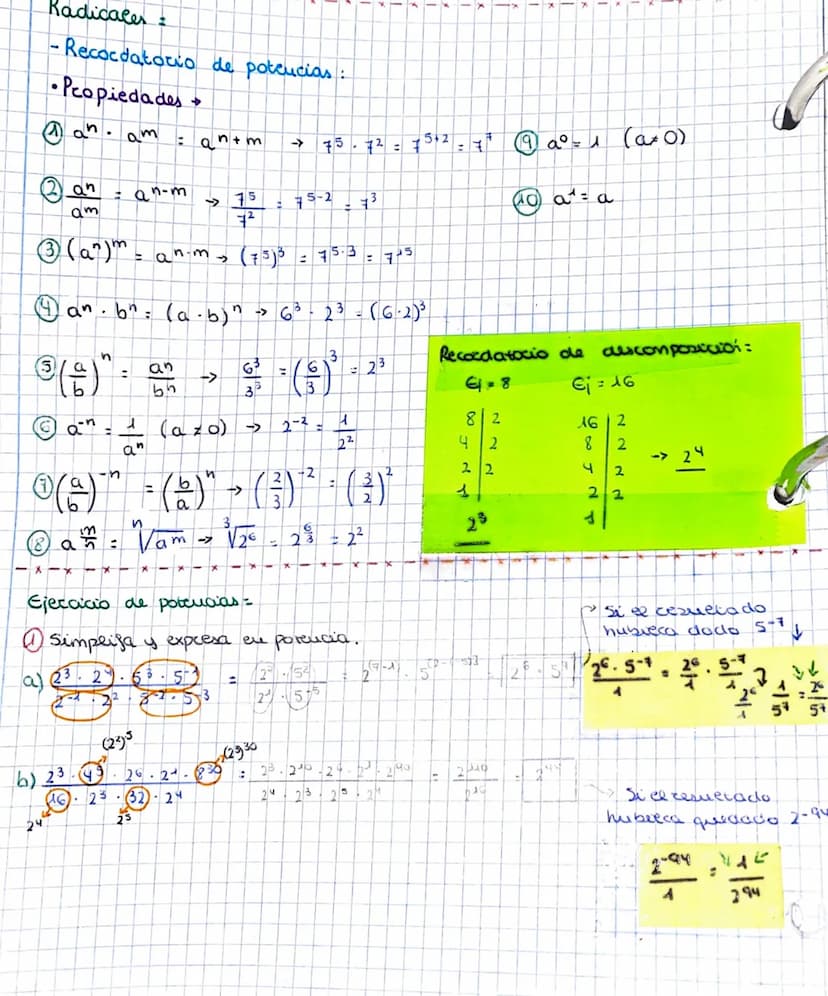 Radicales :
- Recordatorio de potencias :
• Propiedades →
① aⁿ · aᵐ = aⁿ⁺ᵐ → 7⁵ · 7² = 7⁵⁺² = 7⁷
⑨ a⁰ = 1 (a≠0)
② aⁿ/aᵐ = aⁿ⁻ᵐ → 7⁵/7² = 7⁵⁻² = 7³
⑩ a¹ = a
③ (aⁿ)ᵐ = aⁿ·ᵐ → (7⁵)³ = 7⁵·³ = 7¹⁵
④ aⁿ · bⁿ = (a · b)ⁿ → 6³ · 2³ = (6·2)³
⑤ (a/b)ⁿ = aⁿ/bⁿ → 6³/3³ = (6/3)³ = 2³
⑥ a⁻ⁿ = 1/aⁿ (a≠0) → 2⁻² = 1/2²
⑦ (a/b)⁻ⁿ = (b/a)ⁿ → (2/3)⁻² = (3/2)²
⑧ a^(m/n) = ⁿ√aᵐ → ³√2⁶ = 2^(6/3) = 2²
Recordatorio de descomposición:
Ej = 8 Ej = 16
8 | 2 16 | 2
4 | 2 8 | 2
2 | 2 4 | 2 → 2⁴
1 | 2 | 2
2³ 1 |
Ejercicio de potencias =
① Simplifa y expresa en potencia.
a) 2³ · 2⁴ · 5³ · 5⁻¹
Si el resultado
hubiera dado 5⁻⁷ ↓
2⁶ · 5⁻⁷/1 = 2⁶/1 · 5⁻⁷/1
2⁶/1 · 1/5⁷ = 2⁶/5⁷
(2²)⁵ (2³)³⁰
b) 2³ · 4⁵ · 2⁶ · 2¹ · 8³⁰
16 · 2³ · 32 · 2⁴
2⁴ 2⁵
Si el resultado
hubiera quedado 2⁻⁹⁴
2⁻⁹⁴/1 = 1/2⁹⁴